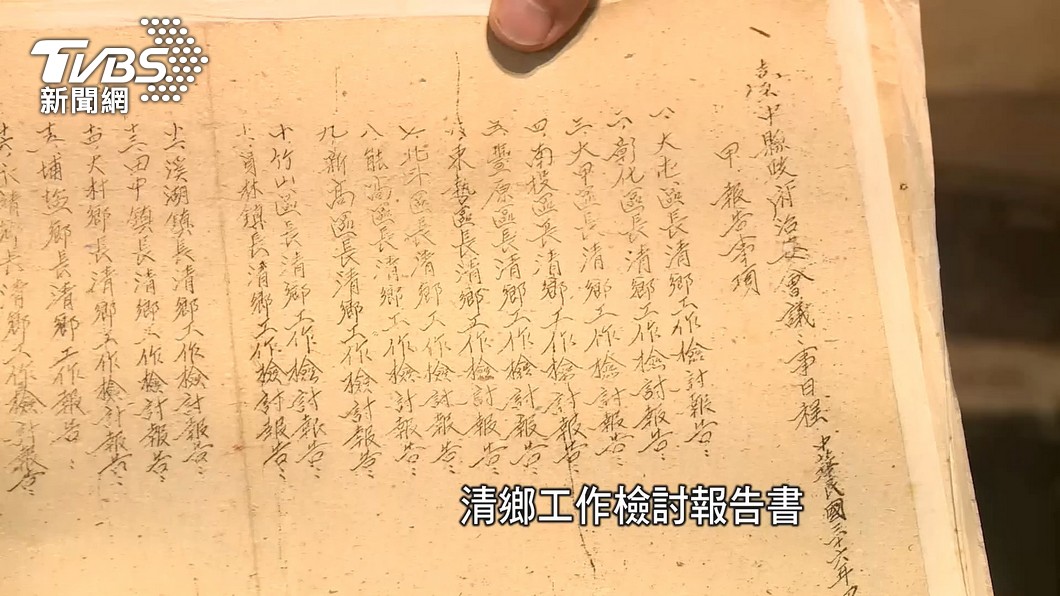 TVBS
新聞網
臺中縣政府治安會議々事日程 中華民國三十六年
甲 報告事項
一、大屯區長清鄉工作檢討報告
二、彰化區長清鄉工作檢討報告
三、大甲區長清鄉工作檢討報告
四、南投區長清鄉工作檢討報告
五、豐原區長清鄉工作檢討報告
六、東勢區長清鄉工作檢討報告
七、北斗區長清鄉工作檢討報告
八、能高區長清鄉工作檢討報告
九、新高區長清鄉工作檢討報告
十、竹山區長清鄉工作檢討報告
十一、員林鎮長清鄉工作檢討報告
十二、溪湖鎮長清鄉工作檢討報告
十三、田中鎮長清鄉工作檢討報告
十四、大村鄉長清鄉工作檢討報告
十五、埔鹽鄉長清鄉工作報告
十六、永靖鄉長清鄉工作檢討報告
清鄉工作檢討報告書